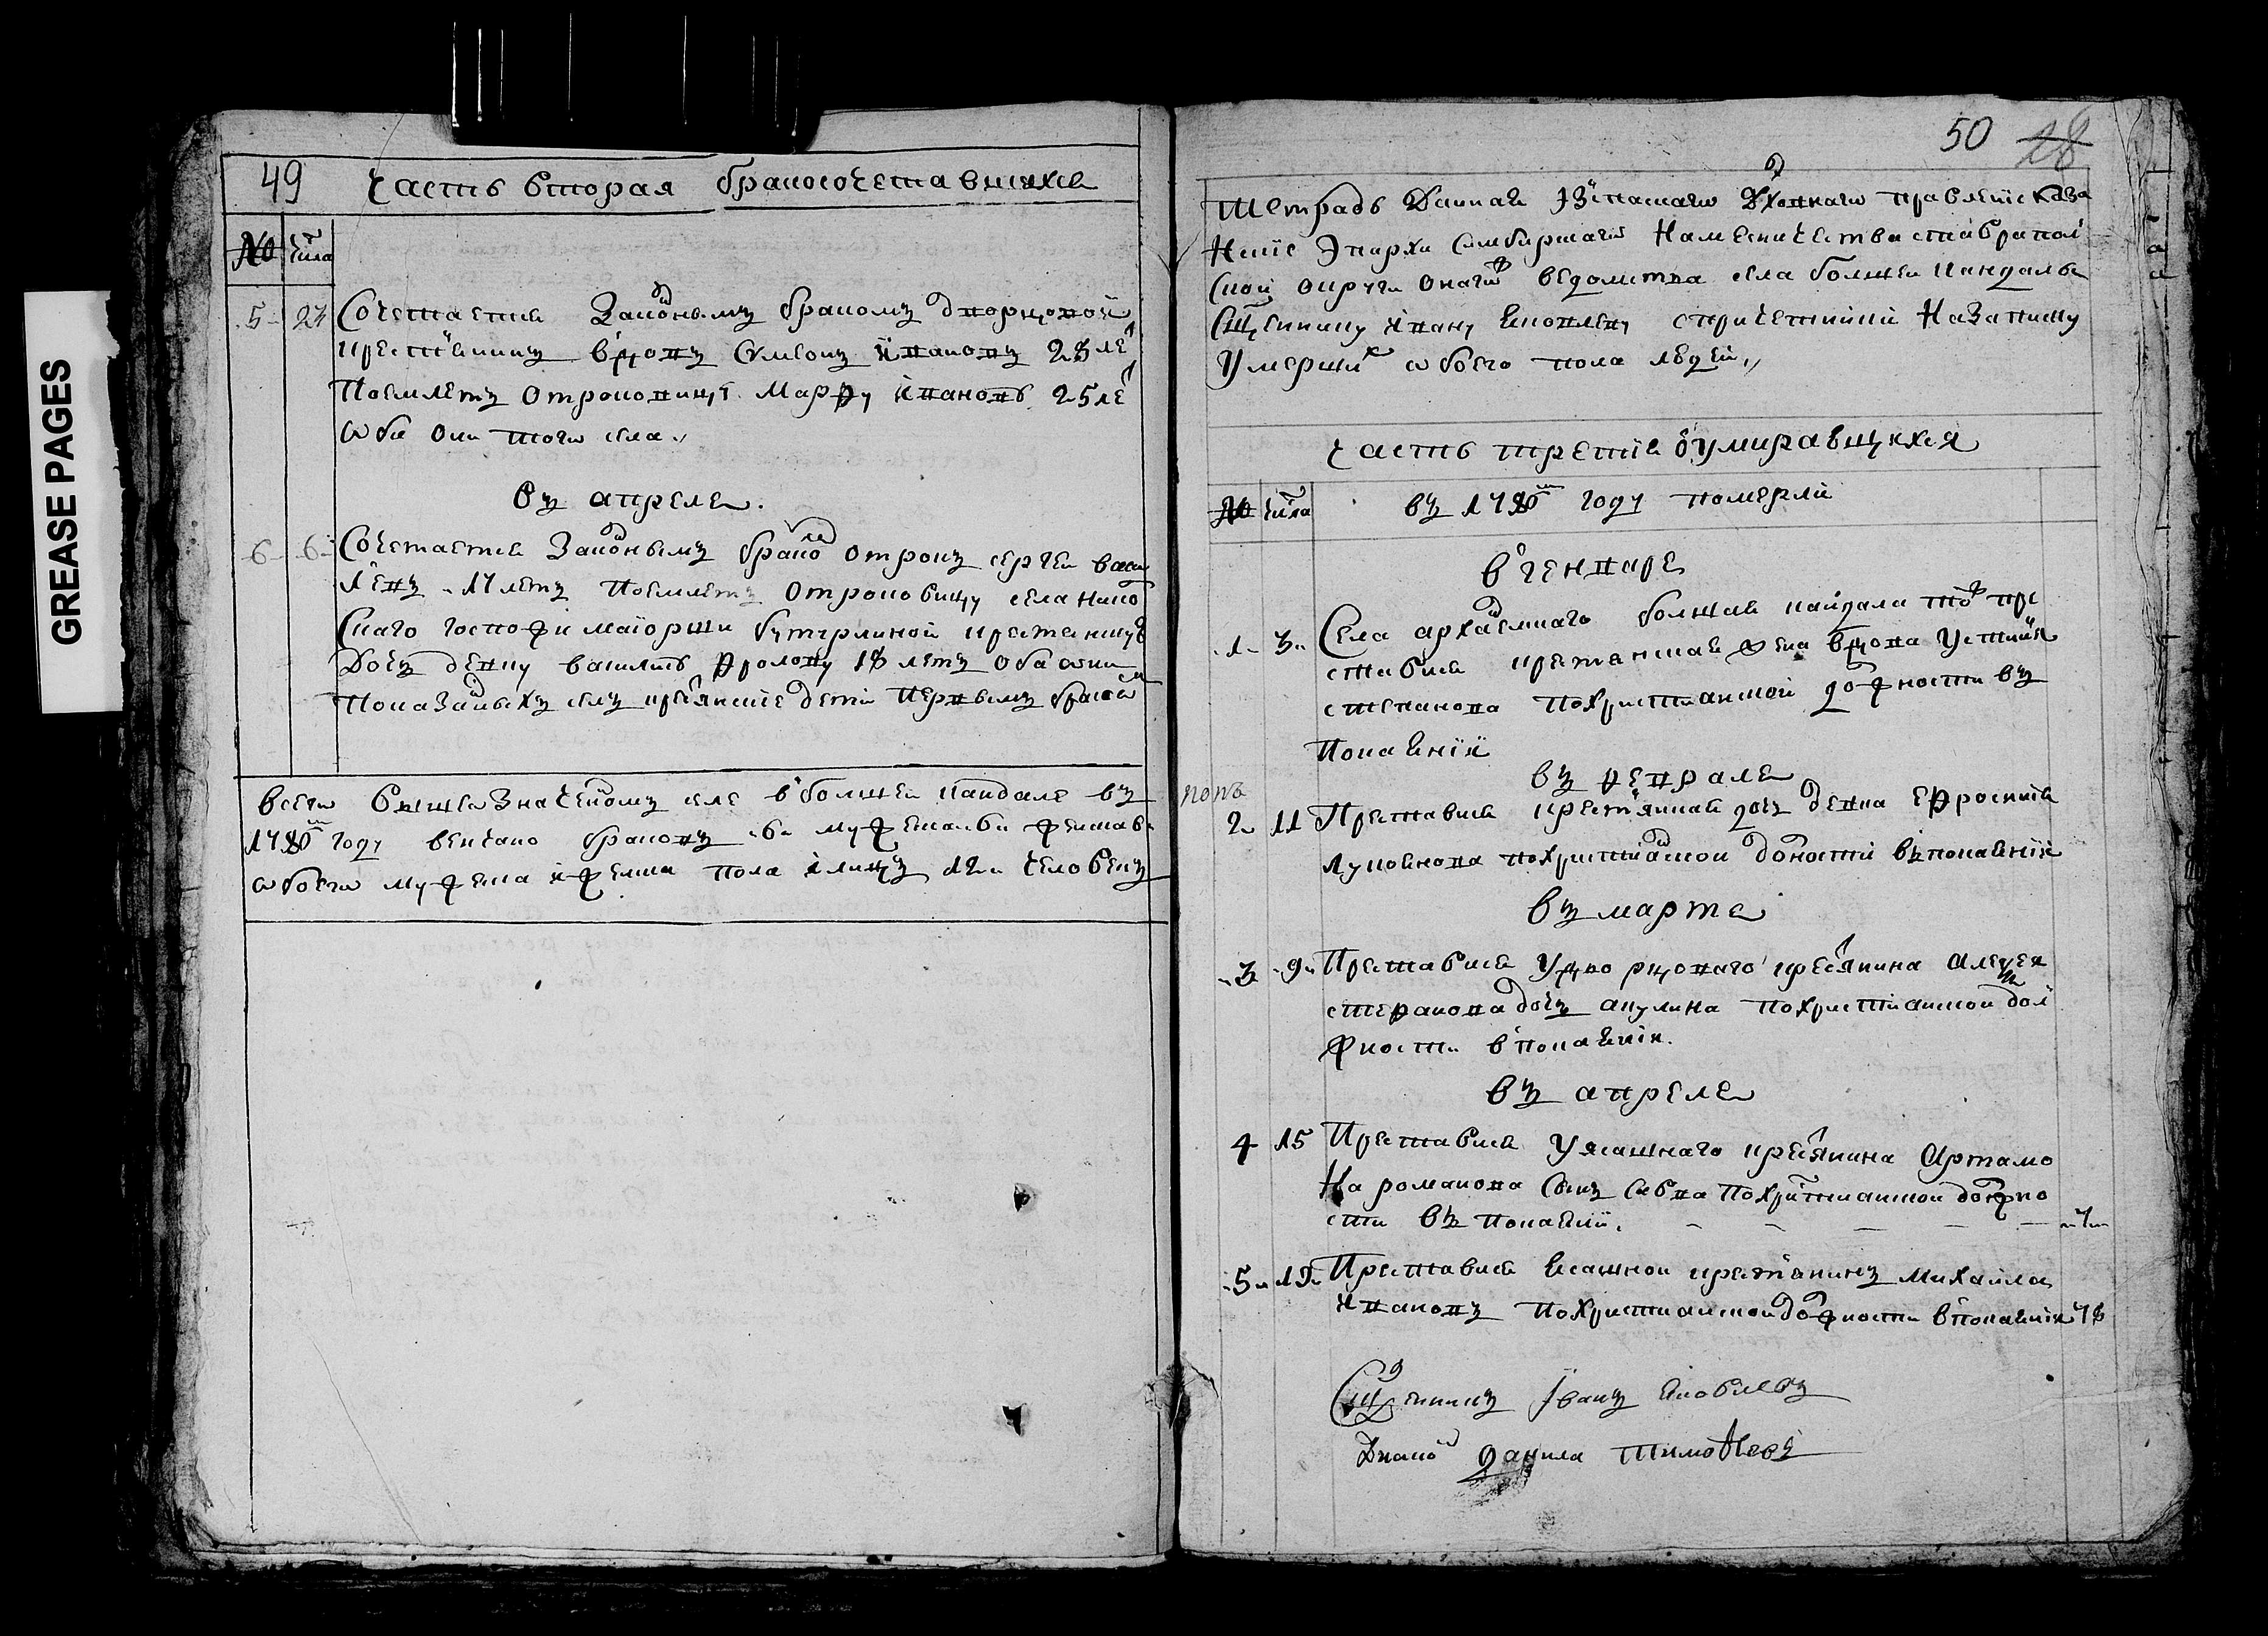 GREASE PAGES
49 Часть вторая бракосочетавшихся
№ числа
5 23 Сочетается законнымъ бракомъ дворцовой
крестьянинъ вдовъ Симеонъ Ивановъ 28 ле
поемлетъ отроковицу Марфу Иванову 25 ле
обе они того села.
въ апреле.
6 6 Сочетается законнымъ браком отрокъ Сергей Васи
льевъ 17 летъ поемлетъ отроковицу села
скаго госпожи маіорши Бутурлиной крестьянину
дочь девку Василису Фролову 18 летъ оба они
показаныхъ селъ крестьянские дети первымъ браком
всего вышеозначеному селе в болшей кандале въ
1780 году венчано браковъ 6 мужеска 6 женска 6
обоего мужеска и женска пола и лицъ 12 человекъ
50 28
Тетрадь данная из духовнаго правления каза
ние Епархи Симбирскаго наместничества ставропол
ской округи онаго ведомства села болшей кандалы
священнику Ивану Яковлеву с причетники на записку
умерших обоего пола людей
Часть третия о умиравшихся
№ числа въ 1780 году померли
в генваре
1 3 Села архангелскаго болшая кандала то пре
ставися крестьянская жена вдова Устиния
Степанова по христианской должности въ
покаянии
въ феврале
попъ
2 11 Преставися крестьянская дочь девка Ефросиния
Лукоянова по христианской должности въ покаянии
въ марте
3 9 Преставися у дворцоваго крестьянина Алексея
Стефанова дочь Акулина по христианской дол
жности в покаянии.
въ апреле
4 15 Преставися у ясашнаго крестьянина Артамо
на Романова сынъ Савва по христианской должно
сти въ покаянии.
5 19 Преставися ясашной крестьянинъ Михаила
Ивановъ по христианской должности в покаянии 78
Священникъ Іванъ Яковлевъ
Диакон Данила Тимофеев